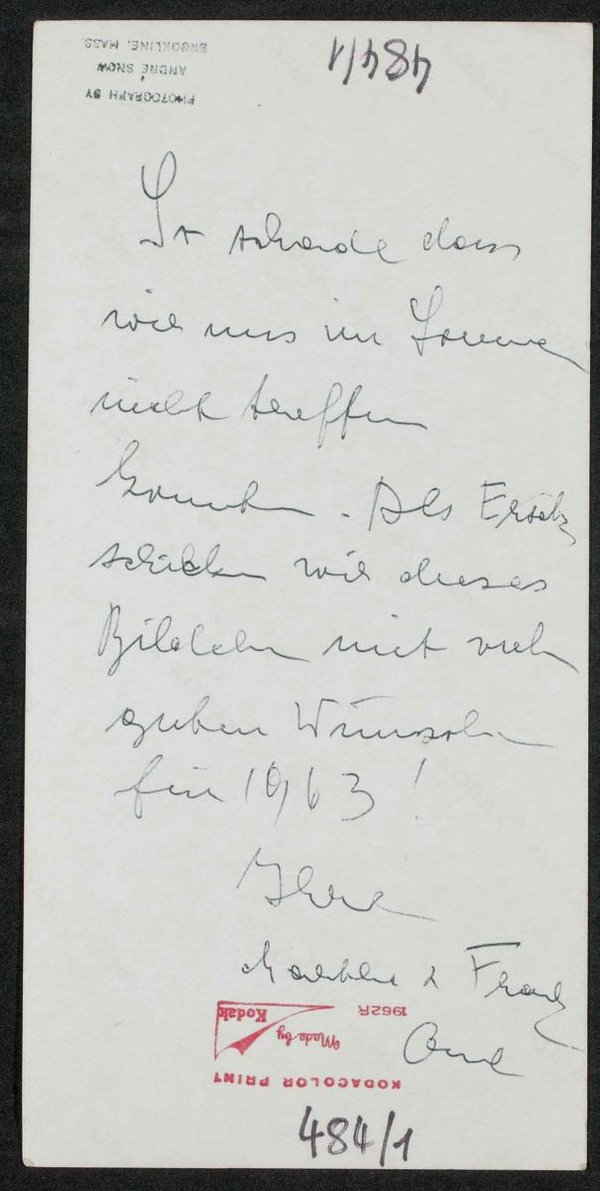 PHOTOGRAPH BY
ANDRÉ SNOW
BROOKLINE, MASS.
484/1
Ist schade dass
wir uns im Sommer
nicht treffen
konnten. Als Ersatz
schicken wir dieses
Bildchen mit vielen
guten Wünschen
für 1963!
Ihre
& Franz
KODACOLOR PRINT
Made by
Kodak
1962R
484/1